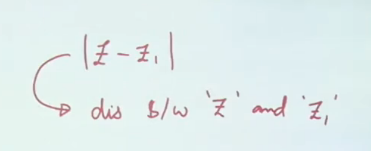 |Z - Z₁|
dis B/W 'Z' and 'Z₁'